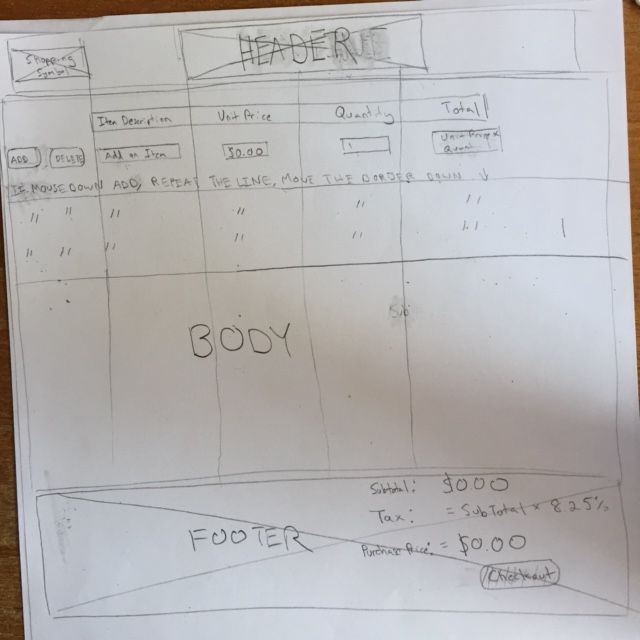 Shopping Symbol
HEADER
Item Description Unit Price Quantity Total
ADD DELETE Add an Item $0.00 1 Unit Price x Quant.
IF MOUSE DOWN ADD, REPEAT THE LINE, MOVE THE BORDER DOWN ↓
" " " " " "
" " " " " "
Sub
BODY
Subtotal: $0.00
Tax: = SubTotal * 8.25%
FOOTER
Purchase Price: = $0.00
Checkout